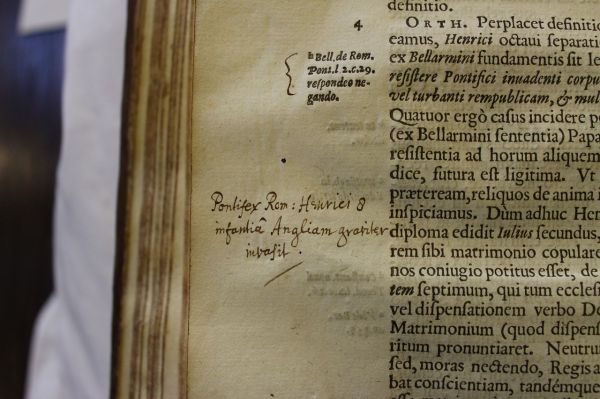 definitio.
4
ORTH. Perplacet definitio
eamus, Henrici octaui separati
ex Bellarmini fundamentis sit le
resistere Pontifici inuadenti corpu
vel turbanti rempublicam, & mul
Quatuor ergò casus incidere po
(ex Bellarmini sententia) Papa
resistentia ad horum aliquem
dice, futura est ligitima. Vt
præteream, reliquos de anima i
inspiciamus. Dùm adhuc Hen
diploma edidit Iulius secundus,
rem sibi matrimonio copulare
nos coniugio potitus esset, de
tem septimum, qui tum ecclesi
vel dispensationem verbo De
Matrimonium (quod dispens
ritum pronuntiaret. Neutrum
sed, moras nectendo, Regis a
bat conscientiam, tandémque
h Bell. de Rom.
Pont. l 2. c. 29.
respondeo ne-
gando.
Pontifex Rom: Henrici 8
infantiā Angliam graviter
invasit.